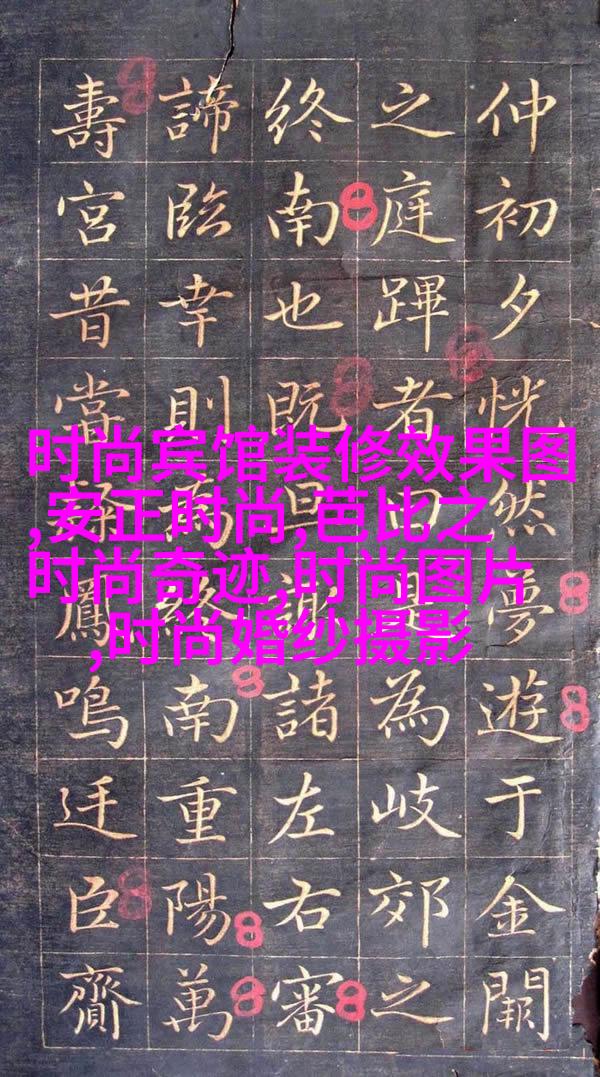 仲初夕恍然夢遊于金闕
之庭蹕者曰是為岐郊之
終南也既旦諸左右審
諦臨幸則終南重陽萬
壽宮昔當鳳鳴迁臣齎
时尚宾馆装修效果图
,安正时尚,芭比之
时尚奇迹,时尚图片
,时尚婚纱摄影